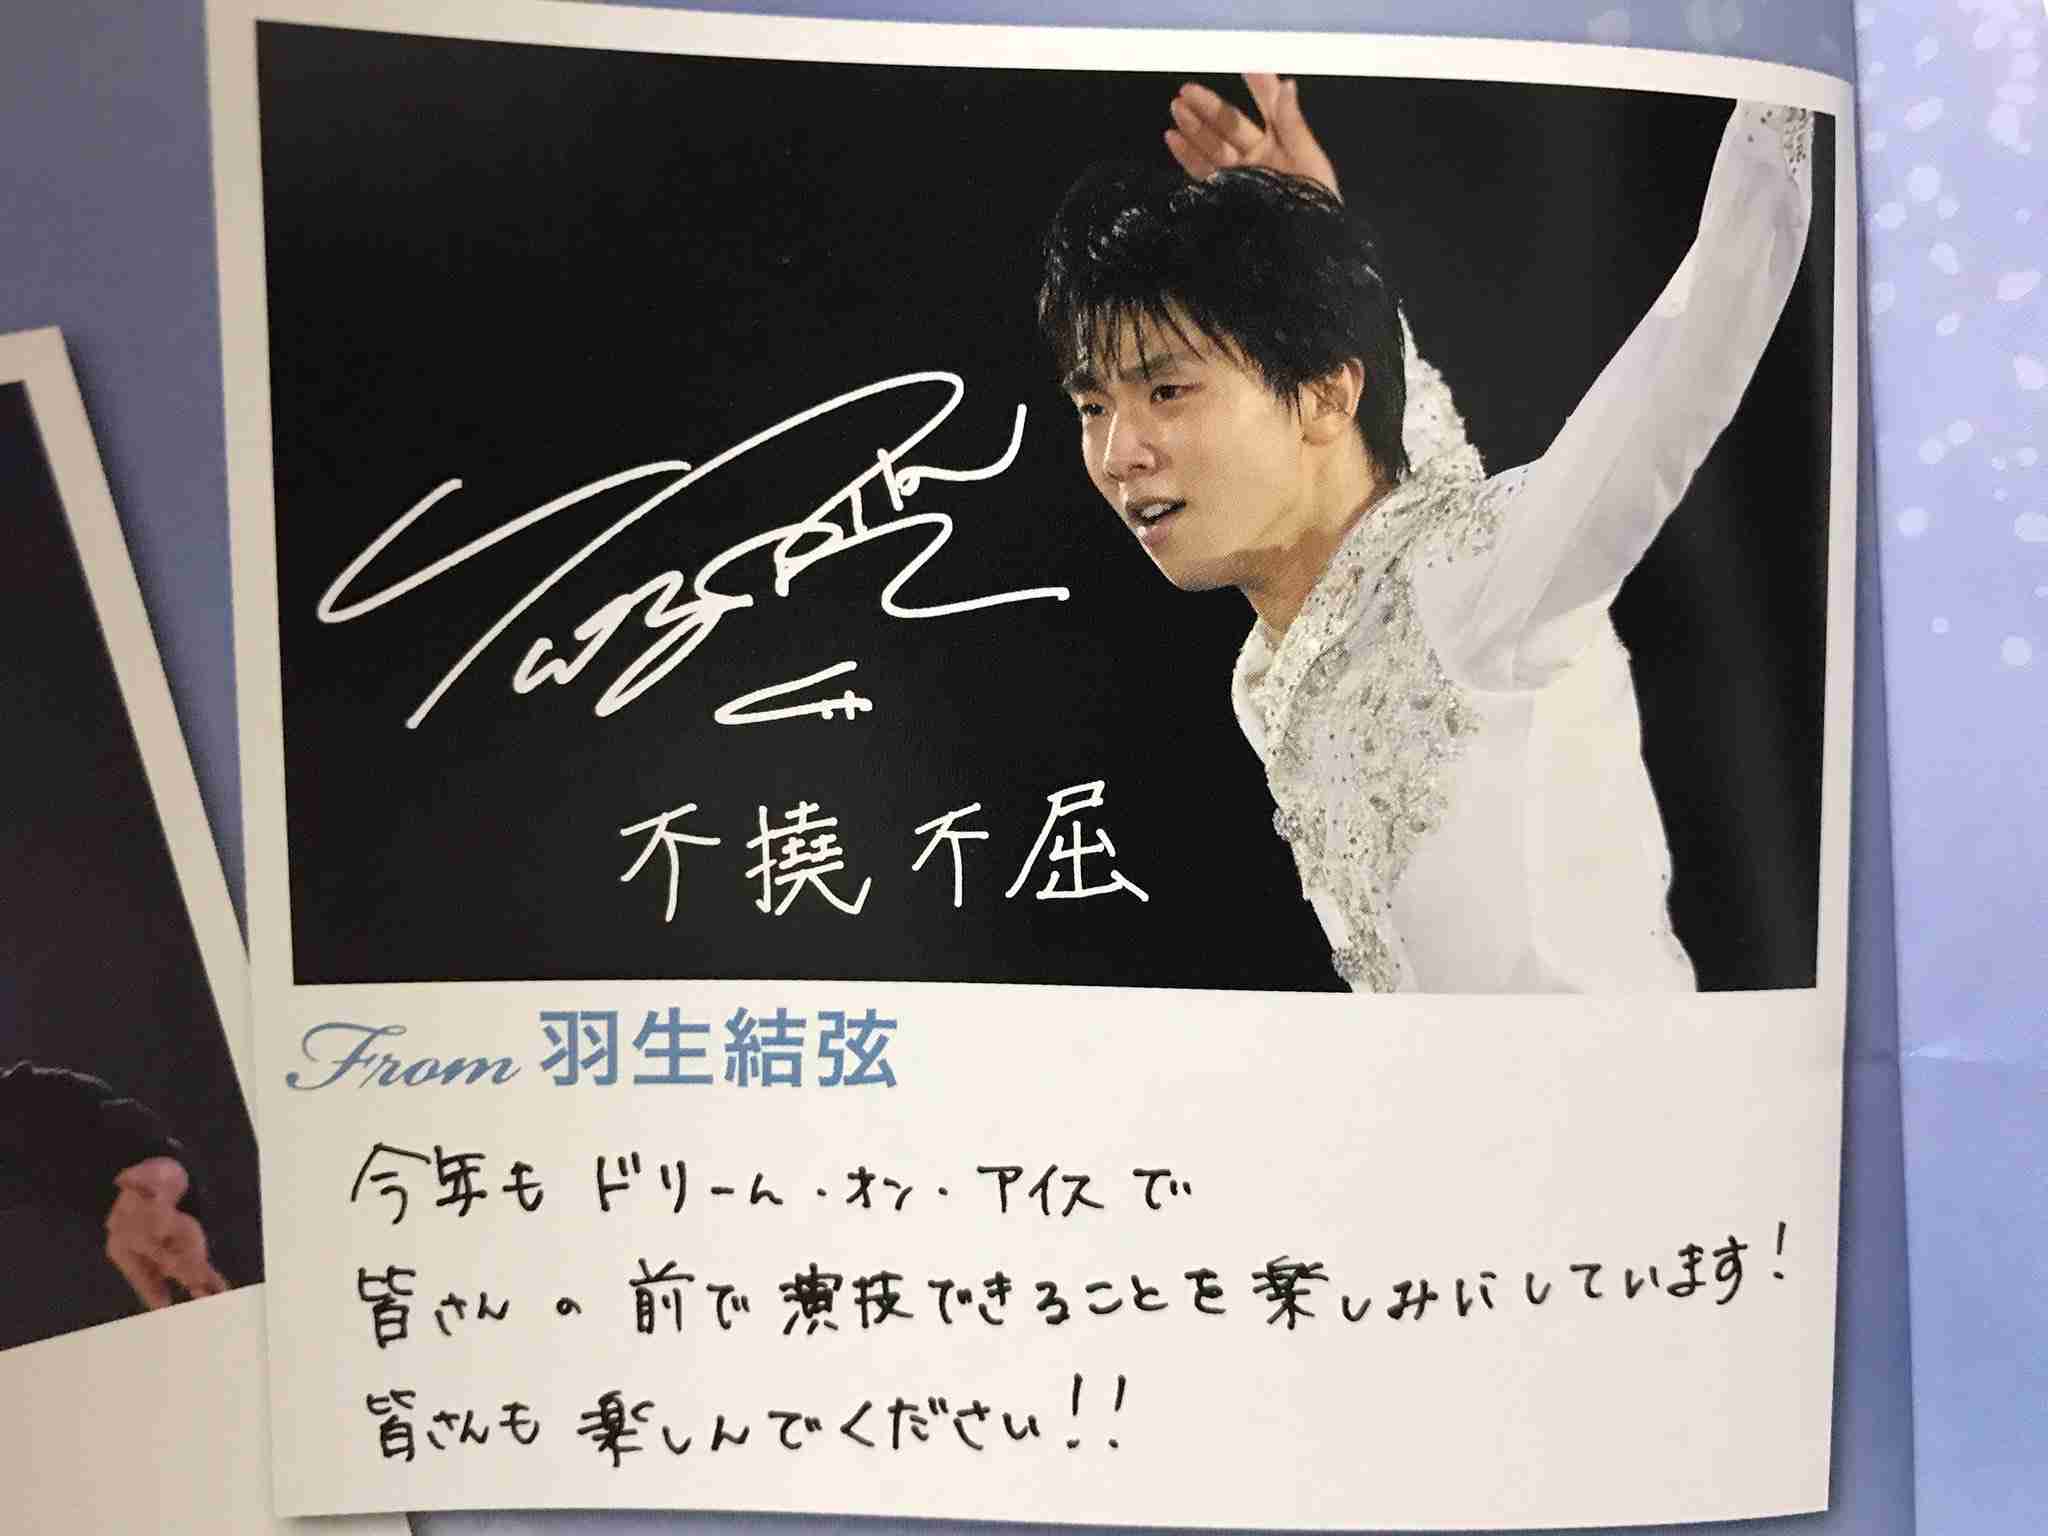 不撓不屈
From 羽生結弦
今年も ドリーム・オン・アイスで
皆さんの前で演技できることを楽しみにしています!
皆さんも楽しんでください!!